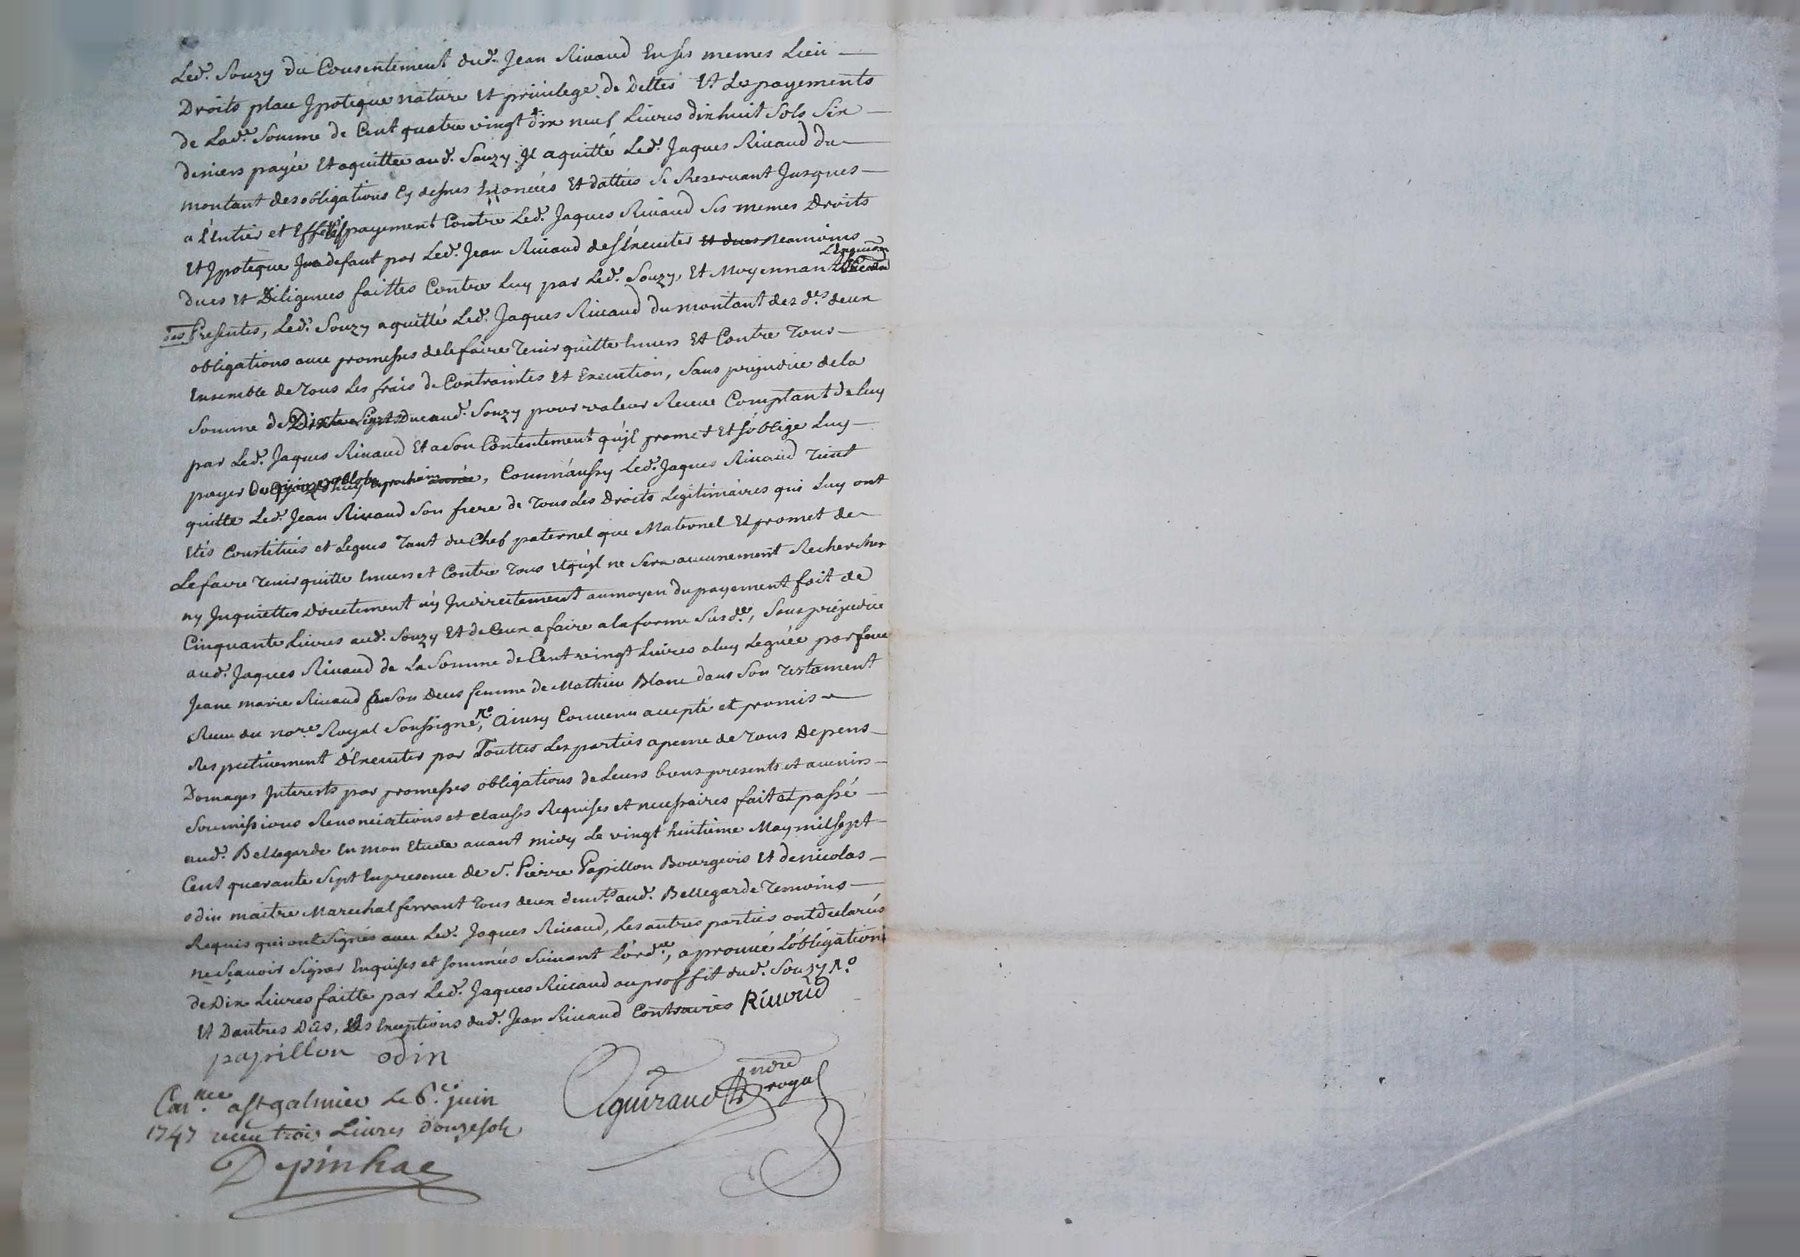 Led.t Souzy du Consentement dud.t Jean Rivaud En ses memes Lieu
Droits place Jpoteque nature Et privilege de Dettes Et Les payements
de Lad.e Somme de Cent quatre vingt dix neuf Livres dixhuit Sols Six
deniers payée Et aquittée aud.t Souzy Jl aquitté Led.t Jaques Rivaud du
montant des obligations Cy dessus Enoncées Et dattées Se Reservant Jusques
a l'Entier et Effectif payement Contre Led.t Jaques Rivaud Ses memes Droits
Et Jpoteque defaut par Led.t Jean Rivaud de s'Executer neamoins
dues Et Diligences faittes Contre Luy par Led.t Souzy, Et Moyennant
des Presentes, Led.t Souzy aquitté Led.t Jaques Rivaud du montant des d.es deux
obligations avec promesses de le faire Tenir quitte Envers Et Contre Tous
Ensemble de Tous Les frais de Contraintes Et Execution, Sans prejudice de la
Somme de aud.t Souzy pour valeur Receue Comptant de Luy
par Led.t Jaques Rivaud Et a Son Contentement qu'jl promet Et s'oblige Luy
payer prochain, Comm'aussy Led.t Jaques Rivaud Tient
quitte Led.t Jean Rivaud Son frere de Tous Les Droits Legitimaires qui Luy ont
Etés Constitués et Legués Tant du Chef paternel que Maternel Et promet de
Le faire Tenir quitte Envers et Contre Tous Et qu'jl ne Sera aucunement Rechercher
ny Jnquietter Directement n'y Jndirectement au moyen du payement fait de
Cinquante Livres aud.t Souzy Et de Ceux a faire a la forme Susd.e, Sans prejudice
aud.t Jaques Rivaud de La Somme de Cent vingt Livres a luy Leguée par feue
Jeane marie Rivaud femme de Mathieu Blanc dans Son Testament
Receu du no.re Royal Soussigné, Ainsy Convenu accepté et promis
Respectivement d'Executer par Touttes Les parties a peine de Tous Depens
Domages Jnterests par promesses obligations de Leurs biens presents et avenirs
Soumissions Renonciations et clauses Requises et necessaires fait et passé
aud.t Bellegarde En mon Etude avant midy Le vingt huitieme May mil sept
Cent quarante Sept En presence de S.r Pierre Papillon Bourgeois Et de nicolas
odin maitre Marechal ferrant Tous deux dem.ts aud.t Bellegarde Temoins
Requis qui ont Signés avec Led.t Jaques Rivaud, Les autres parties ont declarés
ne Scavoir Signer Enquises et Sommées Suivant L'ord.ce, aprouvé L'obligation
de Dix Livres faitte par Led.t Jaques Rivaud au proffit dud.t Souzy
Et Dautres dud.t Jean Rivaud Contraires Rivaud
papillon odin
Aguiraud no.re royal
Con.llée a St galmier Le 6.e juin
1747 receu trois Livres douze sols
Depinhac